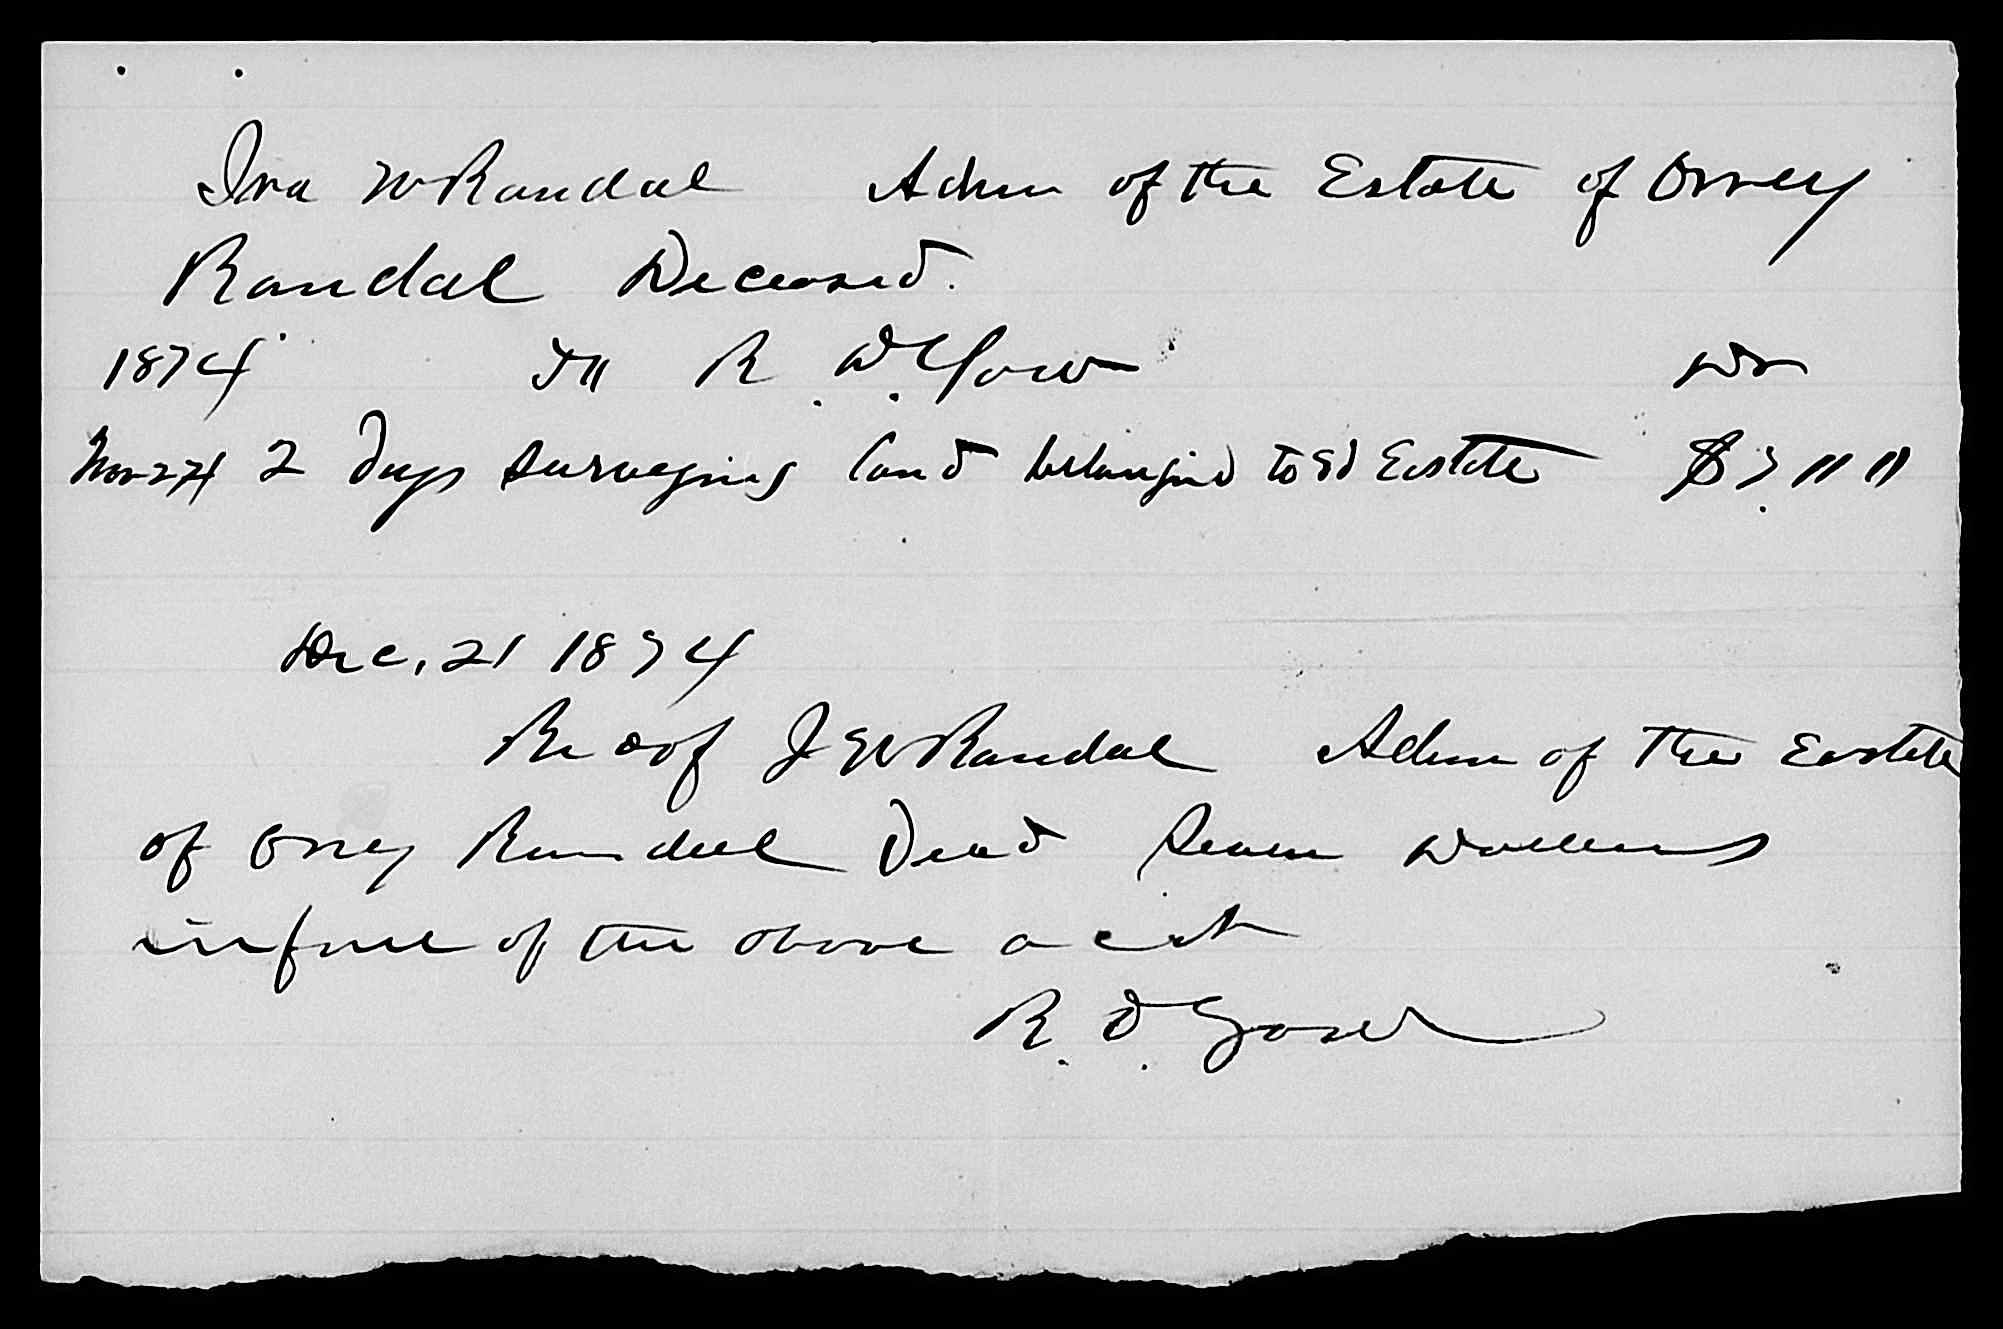 Ira W Randal Admr of the Estate of Orrey
Randal Deceased.
1874 To R. D. Gow Dr
Nov 24 2 Days Surveying land belonging to Sd Estate $7 " "
Dec, 21 1874
Re of I W Randal Admr of the Estate
of Orrey Randal Dead Seven Dollars
in full of the above acct
R. D. Gow